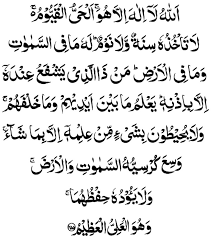 اَللّٰهُ لَآ اِلٰهَ اِلَّا هُوَ ۚ اَلْحَیُّ الْقَیُّوْمُ ۬ۚ
لَا تَاْخُذُهٗ سِنَةٌ وَّلَا نَوْمٌ ؕ لَهٗ مَا فِی السَّمٰوٰتِ
وَمَا فِی الْاَرْضِ ؕ مَنْ ذَا الَّذِیْ یَشْفَعُ عِنْدَهٗۤ
اِلَّا بِاِذْنِهٖ ؕ یَعْلَمُ مَا بَیْنَ اَیْدِیْهِمْ وَمَا خَلْفَهُمْ ۚ
وَلَا یُحِیْطُوْنَ بِشَیْءٍ مِّنْ عِلْمِهٖۤ اِلَّا بِمَا شَآءَ ۚ
وَسِعَ كُرْسِیُّهُ السَّمٰوٰتِ وَالْاَرْضَ ۚ
وَلَا یَـُٔوْدُهٗ حِفْظُهُمَا ۚ
وَهُوَ الْعَلِیُّ الْعَظِیْمُ